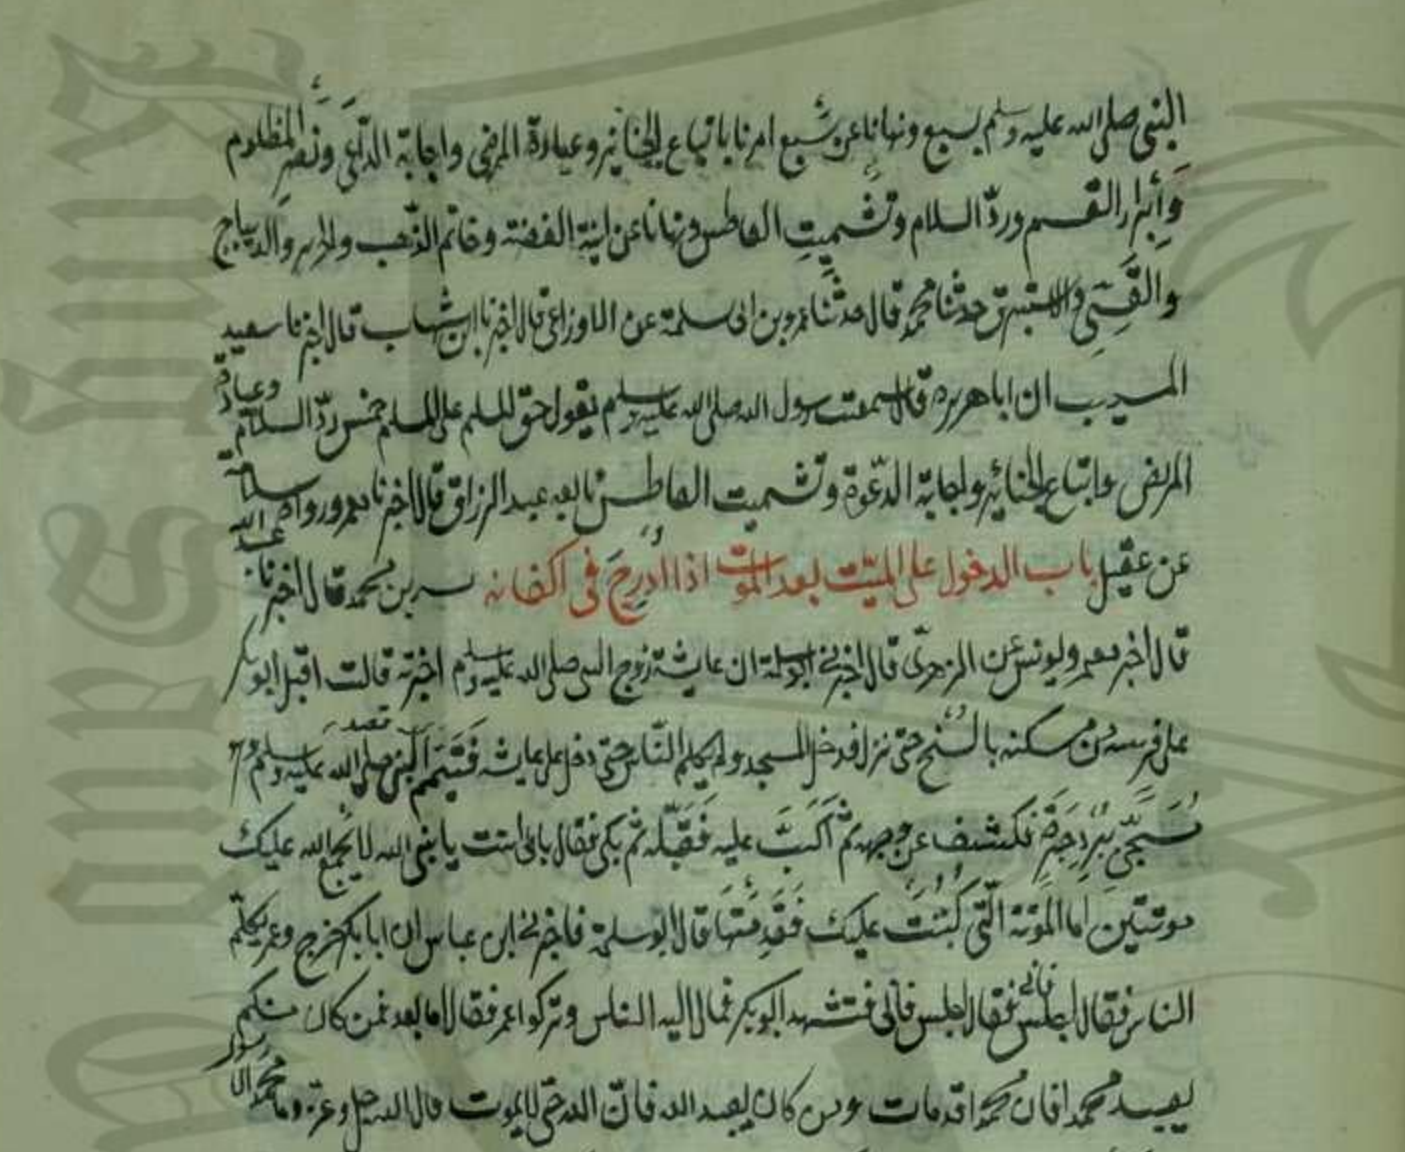 النبي صلى الله عليه وسلم بسبع ونهانا عن سبع امرنا باتباع الجنائز وعيادة المرضى واجابة الداعي ونصر المظلوم
وابرار القسم ورد السلام وتشميت العاطس ونهانا عن انية الفضة وخاتم الذهب والحرير والديباج
والقسي والاستبرق حدثنا محمد قال حدثنا عمرو بن ابي سلمة عن الاوزاعي قال اخبرنا ابن شهاب قال اخبرنا سعيد
المسيب ان ابا هريرة قال سمعت رسول الله صلى الله عليه وسلم يقول حق المسلم على المسلم خمس رد السلام وعيادة
المريض واتباع الجنائز واجابة الدعوة وتشميت العاطس تابعه عبد الرزاق قال اخبرنا معمر ورواه سلامة
عن عقيل باب الدخول على الميت بعد الموت اذا ادرج في اكفانه بن محمد قال اخبرنا عبد الله
قال اخبر معمر ويونس عن الزهري قال اخبرني ابو سلمة ان عايشة زوج النبي صلى الله عليه وسلم اخبرته قالت اقبل ابو بكر
على فرسه من مسكنه بالسنح حتى نزل فدخل المسجد ولم يكلم الناس حتى دخل على عايشة فتيمم النبي صلى الله عليه وسلم وهو
مسجى ببرد حبرة فكشف عن وجهه ثم اكب عليه فقبله ثم بكى فقال بابي انت يا نبي الله لا يجمع الله عليك
موتتين اما الموتة التي كتبت عليك فقد متها قال ابو سلمة فاخبرني ابن عباس ان ابا بكر خرج وعمر يكلم
الناس فقال اجلس فابى فقال اجلس فابى فتشهد ابو بكر فمال اليه الناس وتركوا عمر فقال اما بعد فمن كان منكم
يعبد محمدا فان محمدا قد مات ومن كان يعبد الله فان الله حي لا يموت قال الله جل وعز وما محمد الا رسول